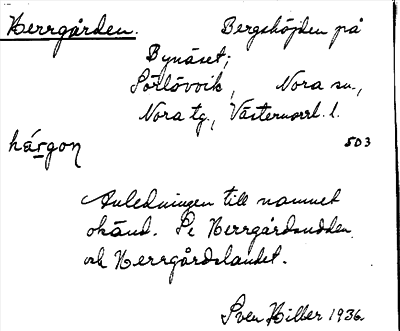 Herrgården. Bergshöjden på
Bynäset;
Sörlövvik, Nora sn.,
Nora tg., Västernorrl. l.
hárgon 503
Anledningen till namnet
okänd. Se Herrgårdsudden
och Herrgårdslandet.
Sven Hiller 1936.